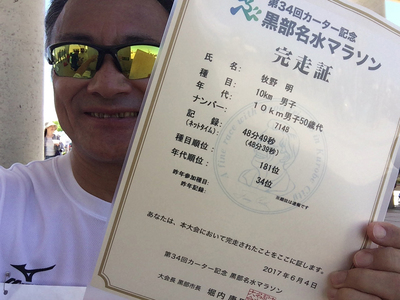 第34回カーター記念
黒部名水マラソン
完走証
氏名: 牧野 明
種目: 10km 男子
年代: 10km男子50歳代
ナンバー: 7148
記録: 48分49秒
(ネットタイム): (48分39秒)
種目順位: 181位
年代順位: 34位
昨年参加種目:
昨年記録:
※順位は速報です
あなたは、本大会において完走されたことをここに証します。
2017年6月4日
第34回カーター記念 黒部名水マラソン
大会長 黒部市長 堀内